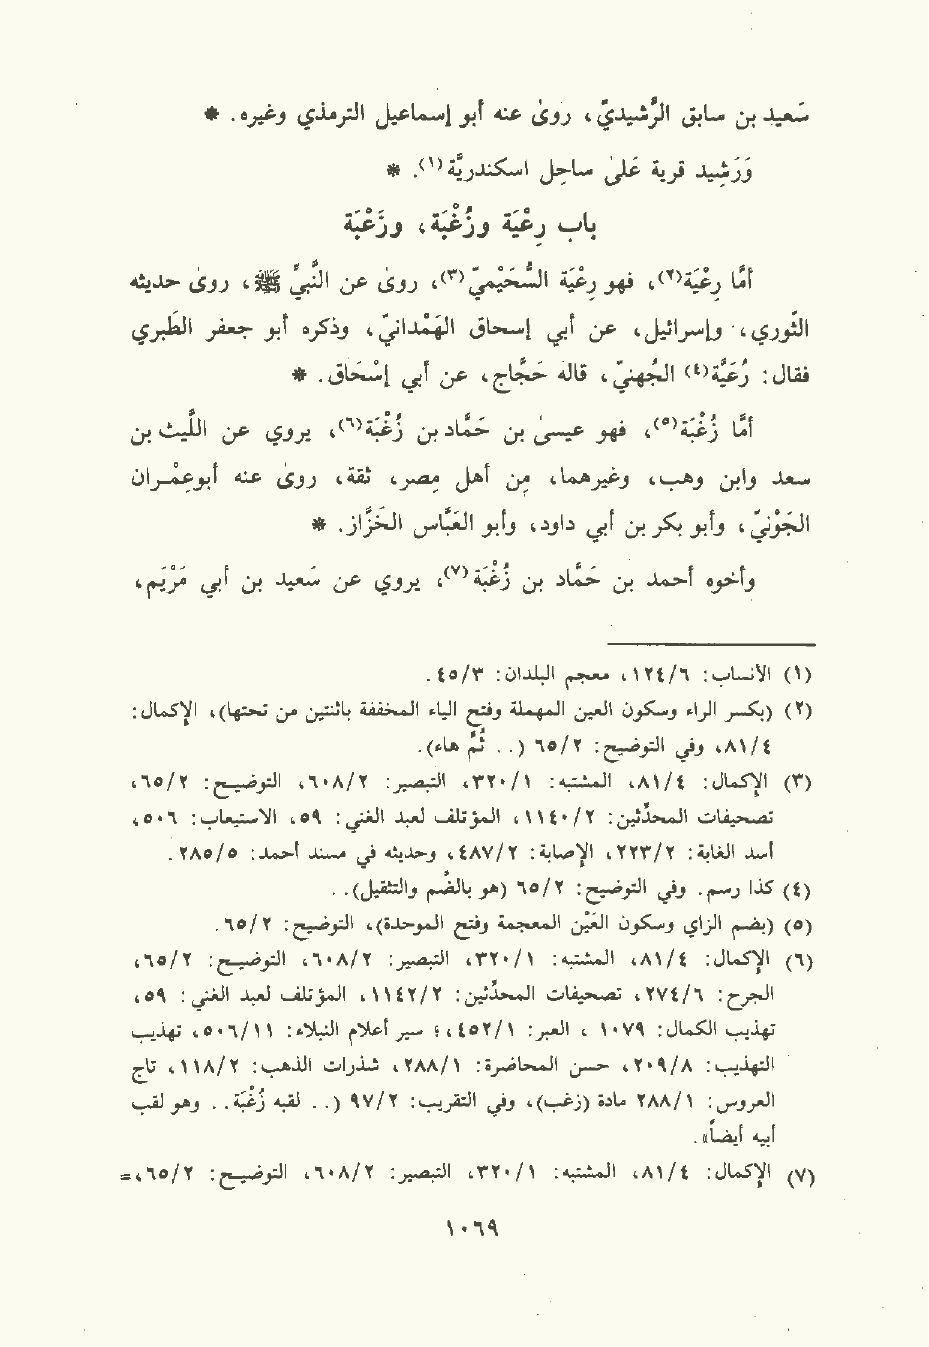 سَعيد بن سابق الرَّشيديّ، روىٰ عنه أبو إسماعيل الترمذي وغيره. *
وَرَشِيد قرية عَلىٰ ساحِل اسكندريَّة(١). *
باب رِعْيَة وزُغْبَة، وزَعْبَة
أمَّا رِعْيَة(٢)، فهو رِعْيَة السُّحَيْميّ(٣)، روىٰ عن النَّبيِّ ﷺ، روىٰ حديثه
الثَّوري، وإسرائيل، عن أبي إسحاق الهَمْدانيّ، وذكره أبو جعفر الطَّبري
فقال: رُعَيَّة(٤) الجُهنيّ، قاله حَجَّاج، عن أبي إسْحَاق. *
أمَّا زُغْبَة(٥)، فهو عيسىٰ بن حَمَّاد بن زُغْبَة(٦)، يروي عن اللَّيث بن
سعد وابن وهب، وغيرهما، مِن أهل مِصر، ثقة، روىٰ عنه أبوعِمْـران
الجَوْنيّ، وأبو بكر بن أبي داود، وأبو العَبَّاس الخَزَّاز. *
وأخوه أحمد بن حَمَّاد بن زُغْبَة(٧)، يروي عن سَعيد بن أبي مَرْيَم،
(١) الأنساب: ٦/١٢٤، معجم البلدان: ٣/٤٥.
(٢) (بكسر الراء وسكون العين المهملة وفتح الياء المخففة باثنتين من تحتها)، الإكمال:
٤/٨١، وفي التوضيح: ٢/٦٥ (.. ثُمَّ هاء).
(٣) الإكمال: ٤/٨١، المشتبه: ١/٣٢٠، التبصير: ٢/٦٠٨، التوضيح: ٢/٦٥،
تصحيفات المحدِّثين: ٢/١١٤٠، المؤتلف لعبد الغني: ٥٩، الاستيعاب: ٥٠٦،
أسد الغابة: ٢/٢٢٣، الإصابة: ٢/٤٨٧، وحديثه في مسند أحمد: ٥/٢٨٥.
(٤) كذا رسم. وفي التوضيح: ٢/٦٥ (هو بالضَم والتثقيل)..
(٥) (بضم الزاي وسكون الغَين المعجمة وفتح الموحدة)، التوضيح: ٢/٦٥.
(٦) الإكمال: ٤/٨١، المشتبه: ١/٣٢٠، التبصير: ٢/٦٠٨، التوضيح: ٢/٦٥،
الجرح: ٦/٢٧٤، تصحيفات المحدِّثين: ٢/١١٤٢، المؤتلف لعبد الغني: ٥٩،
تهذيب الكمال: ١٠٧٩ ، العبر: ١/٤٥٢، ؛ سير أعلام النبلاء: ١١/٥٠٦، تهذيب
التهذيب: ٨/٢٠٩، حسن المحاضرة: ١/٢٨٨، شذرات الذهب: ٢/١١٨، تاج
العروس: ١/٢٨٨ مادة (زغب)، وفي التقريب: ٢/٩٧ (.. لقبه زُغْبَة.. وهو لقب
أبيه أيضاً».
(٧) الإكمال: ٤/٨١، المشتبه: ١/٣٢٠، التبصير: ٢/٦٠٨، التوضيح: ٢/٦٥،=
١٠٦٩